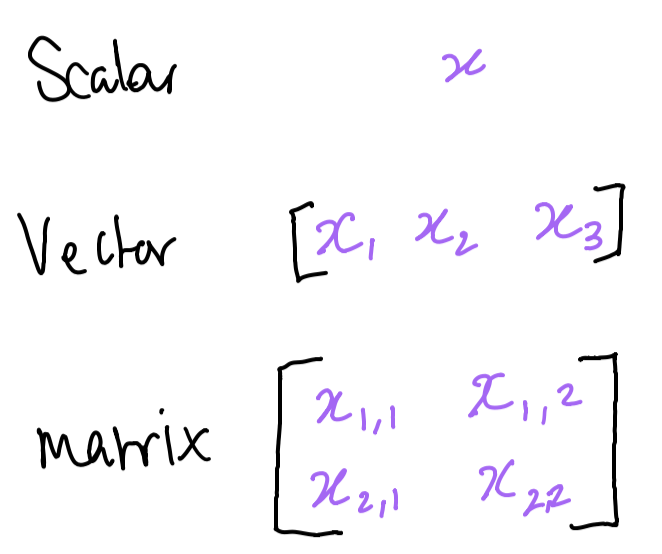 Scalar x
Vector [x₁ x₂ x₃]
matrix [x₁,₁ x₁,₂
x₂,₁ x₂,₂]